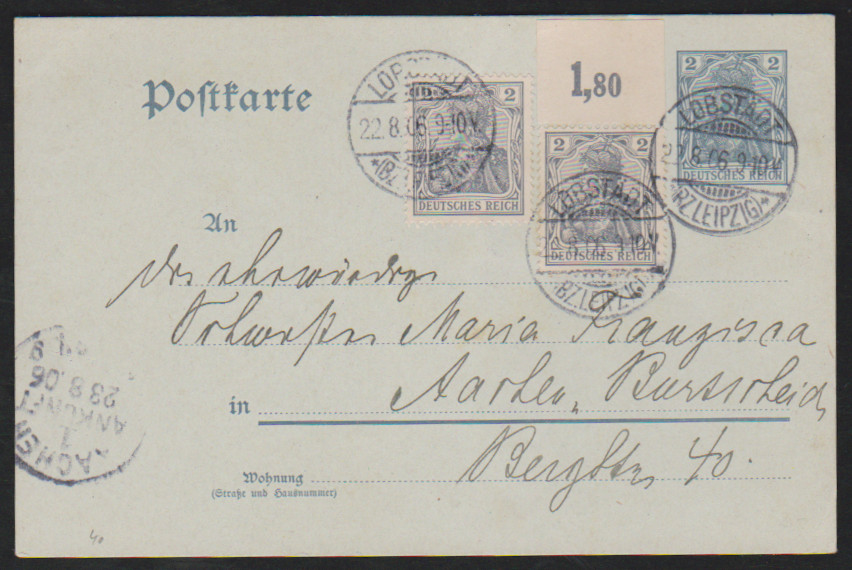 Postkarte
1,80
2
DEUTSCHES REICH
2 2
DEUTSCHES REICH
2 2
DEUTSCHES REICH
LOBSTÄDT
22.8.06 9-10V.
*(BZ.LEIPZIG)*
LOBSTÄDT
8.06 9-10V.
(BZ.LEIPZIG)
LOBSTÄDT
22.8.06 9-10V.
(BZ.LEIPZIG)*
An
die ehrwürdige
Schwester Maria Franzisca
in Aachen, Burtscheid
Bergstr. 40.
Wohnung
(Straße und Hausnummer)
AACHEN
1
ANKUNFT
23.8.06
40